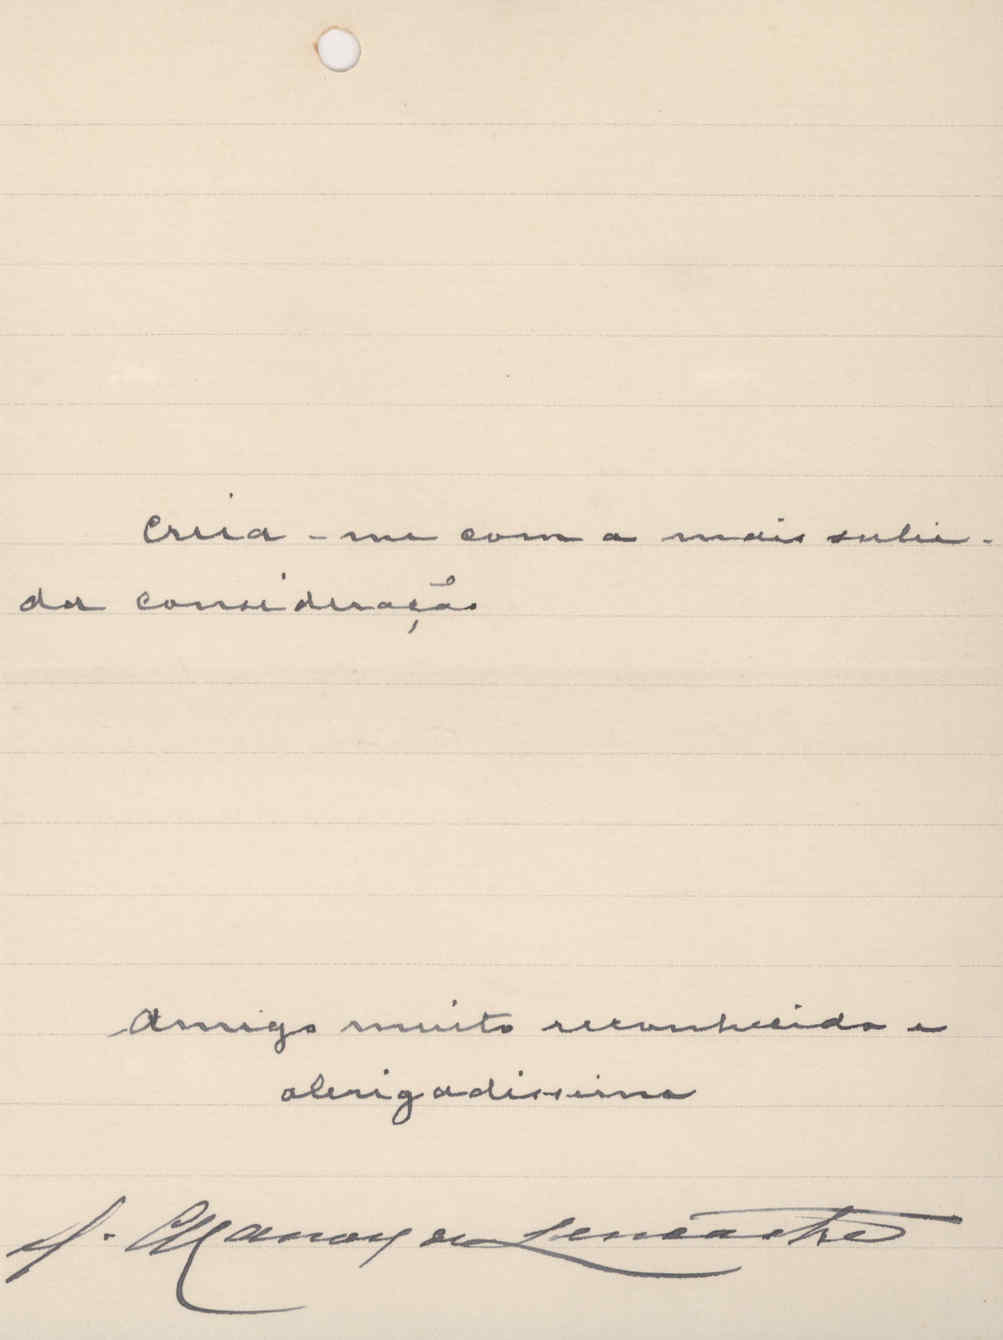 Creia-me com a mais subi-
da consideração
Amigo muito reconhecido e
obrigadissimo
de Lencastre